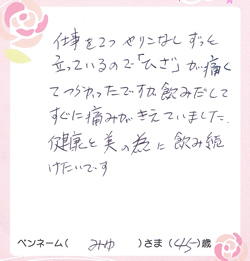 仕事を2つやりこなしずっと
立っているので「ひざ」が痛く
てつらかったですが飲みだして
すぐに痛みがきえていました。
健康と美の為に飲み続
けたいです
ペンネーム( みゆ )さま(45)歳